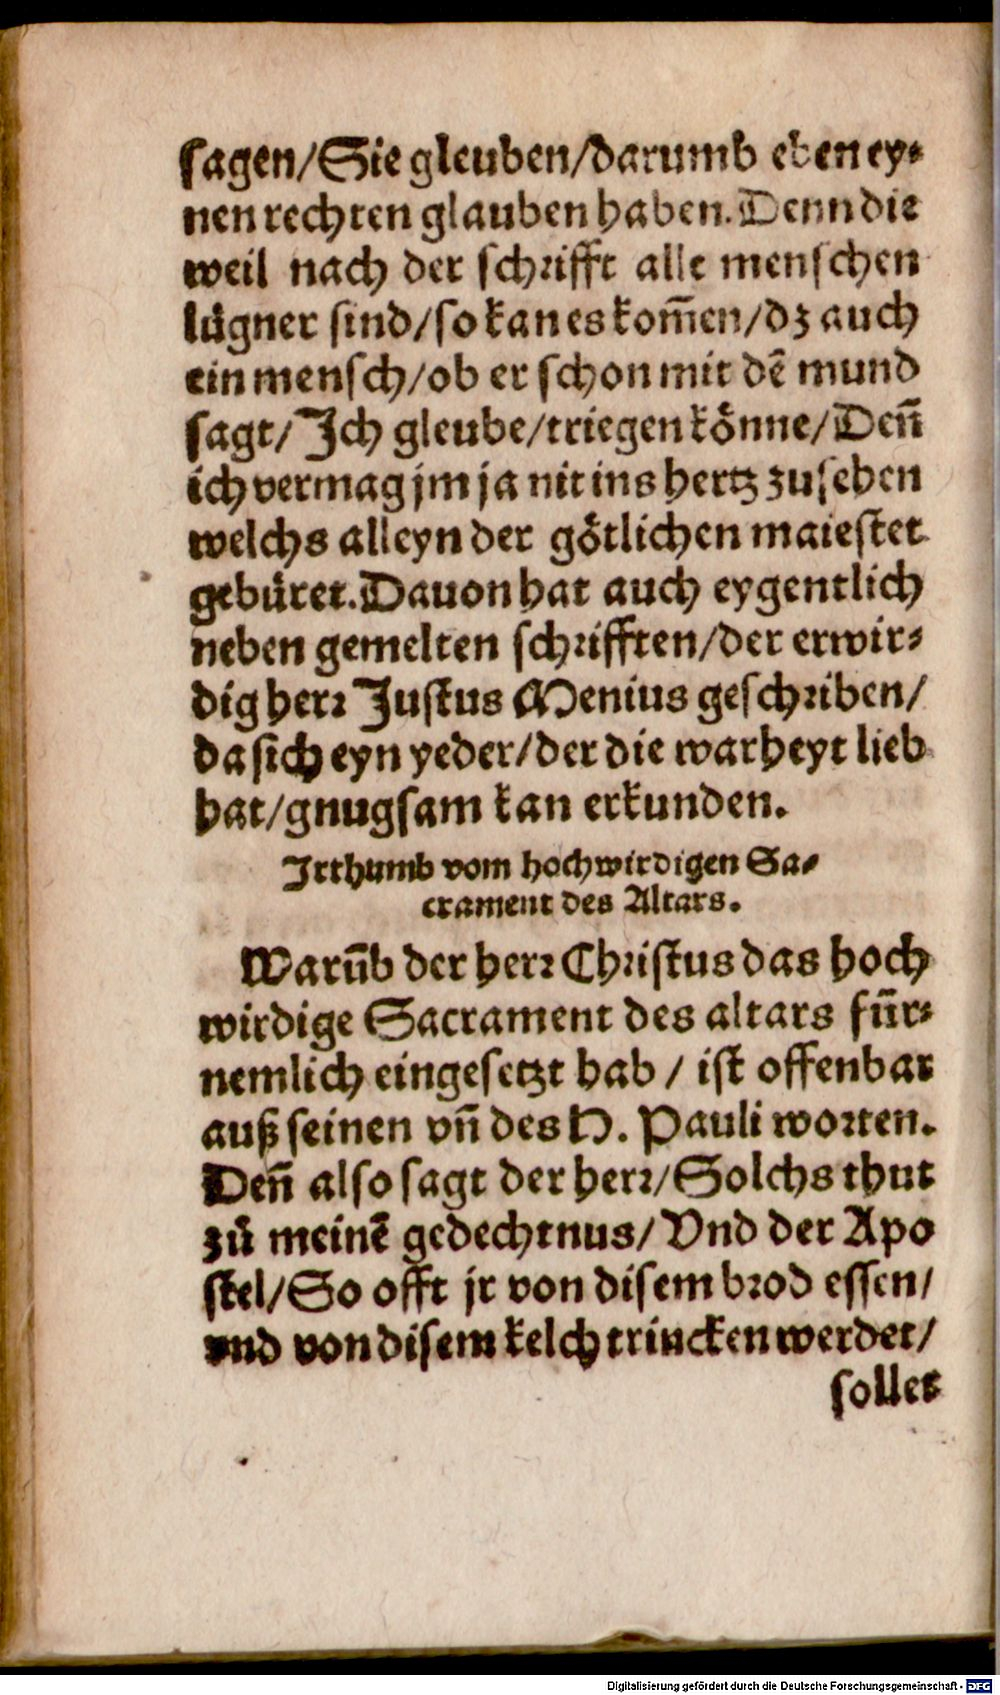 sagen/Sie gleuben/darumb eben ey⸗
nen rechten glauben haben. Denn die
weil nach der schrifft alle menschen
lügner sind/so kan es kom̃en/dz auch
ein mensch/ob er schon mit dē mund
sagt/ Ich gleube/triegen könne/Den̄
ich vermag jm ja nit ins hertz zusehen
welchs alleyn der götlichen maiestet
gebüret. Dauon hat auch eygentlich
neben gemelten schrifften/der erwir⸗
dig herr Justus Menius geschriben/
da sich eyn yeder/der die warheyt lieb
hat/gnugsam kan erkunden.
Irthumb vom hochwirdigen Sa⸗
crament des Altars.
Warūb der herr Christus das hoch
wirdige Sacrament des altars für⸗
nemlich eingesetzt hab / ist offenbar
auß seinen vn̄ des H. Pauli worten.
Den̄ also sagt der herr/Solchs thut
zů meinē gedechtnus/ Vnd der Apo
stel/So offt jr von disem brod essen/
vnd von disem kelch trincken werdet/
sollet
Digitalisierung gefördert durch die Deutsche Forschungsgemeinschaft - DFG